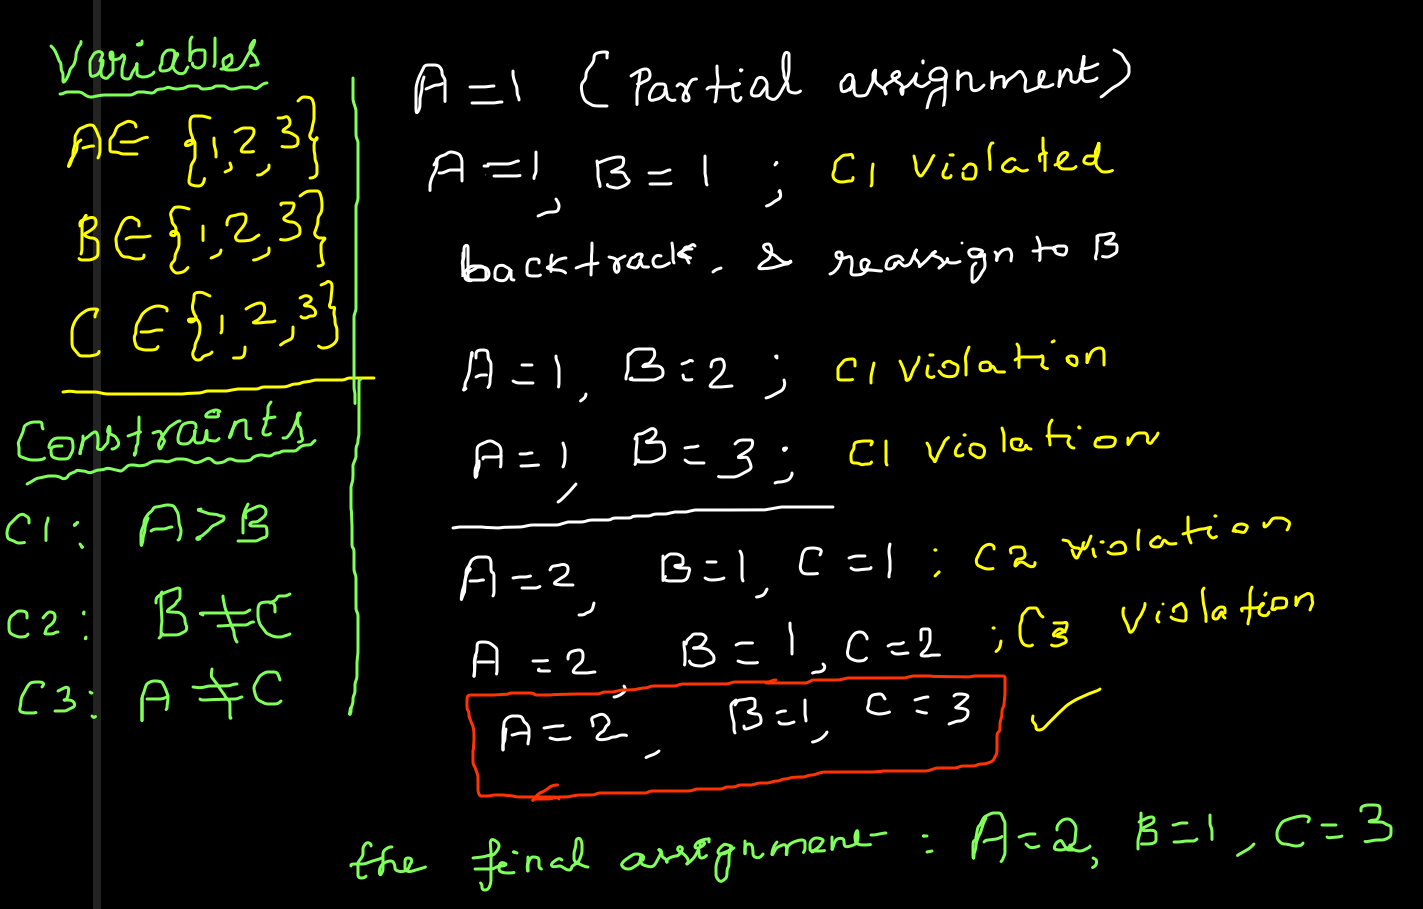 Variables
A ∈ {1,2,3}
B ∈ {1,2,3}
C ∈ {1,2,3}
Constraints
C1: A>B
C2: B≠C
C3: A≠C
A=1 (Partial assignment)
A=1, B=1 ; C1 violated
backtrack, & reassign to B
A=1, B=2 ; C1 violation
A=1, B=3 ; C1 violation
A=2, B=1, C=1 ; C2 violation
A=2, B=1, C=2 ; C3 violation
A=2, B=1, C=3 ✓
the final assignment : A=2, B=1, C=3